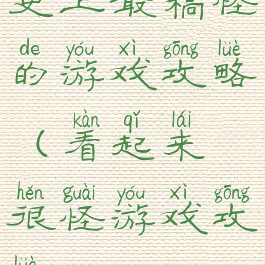 上最怪
de yóu xì gōng lüè
的游戏攻略
kàn qǐ lái
(看起来
hěn guài yóu xì gōng
很怪游戏攻
lüè